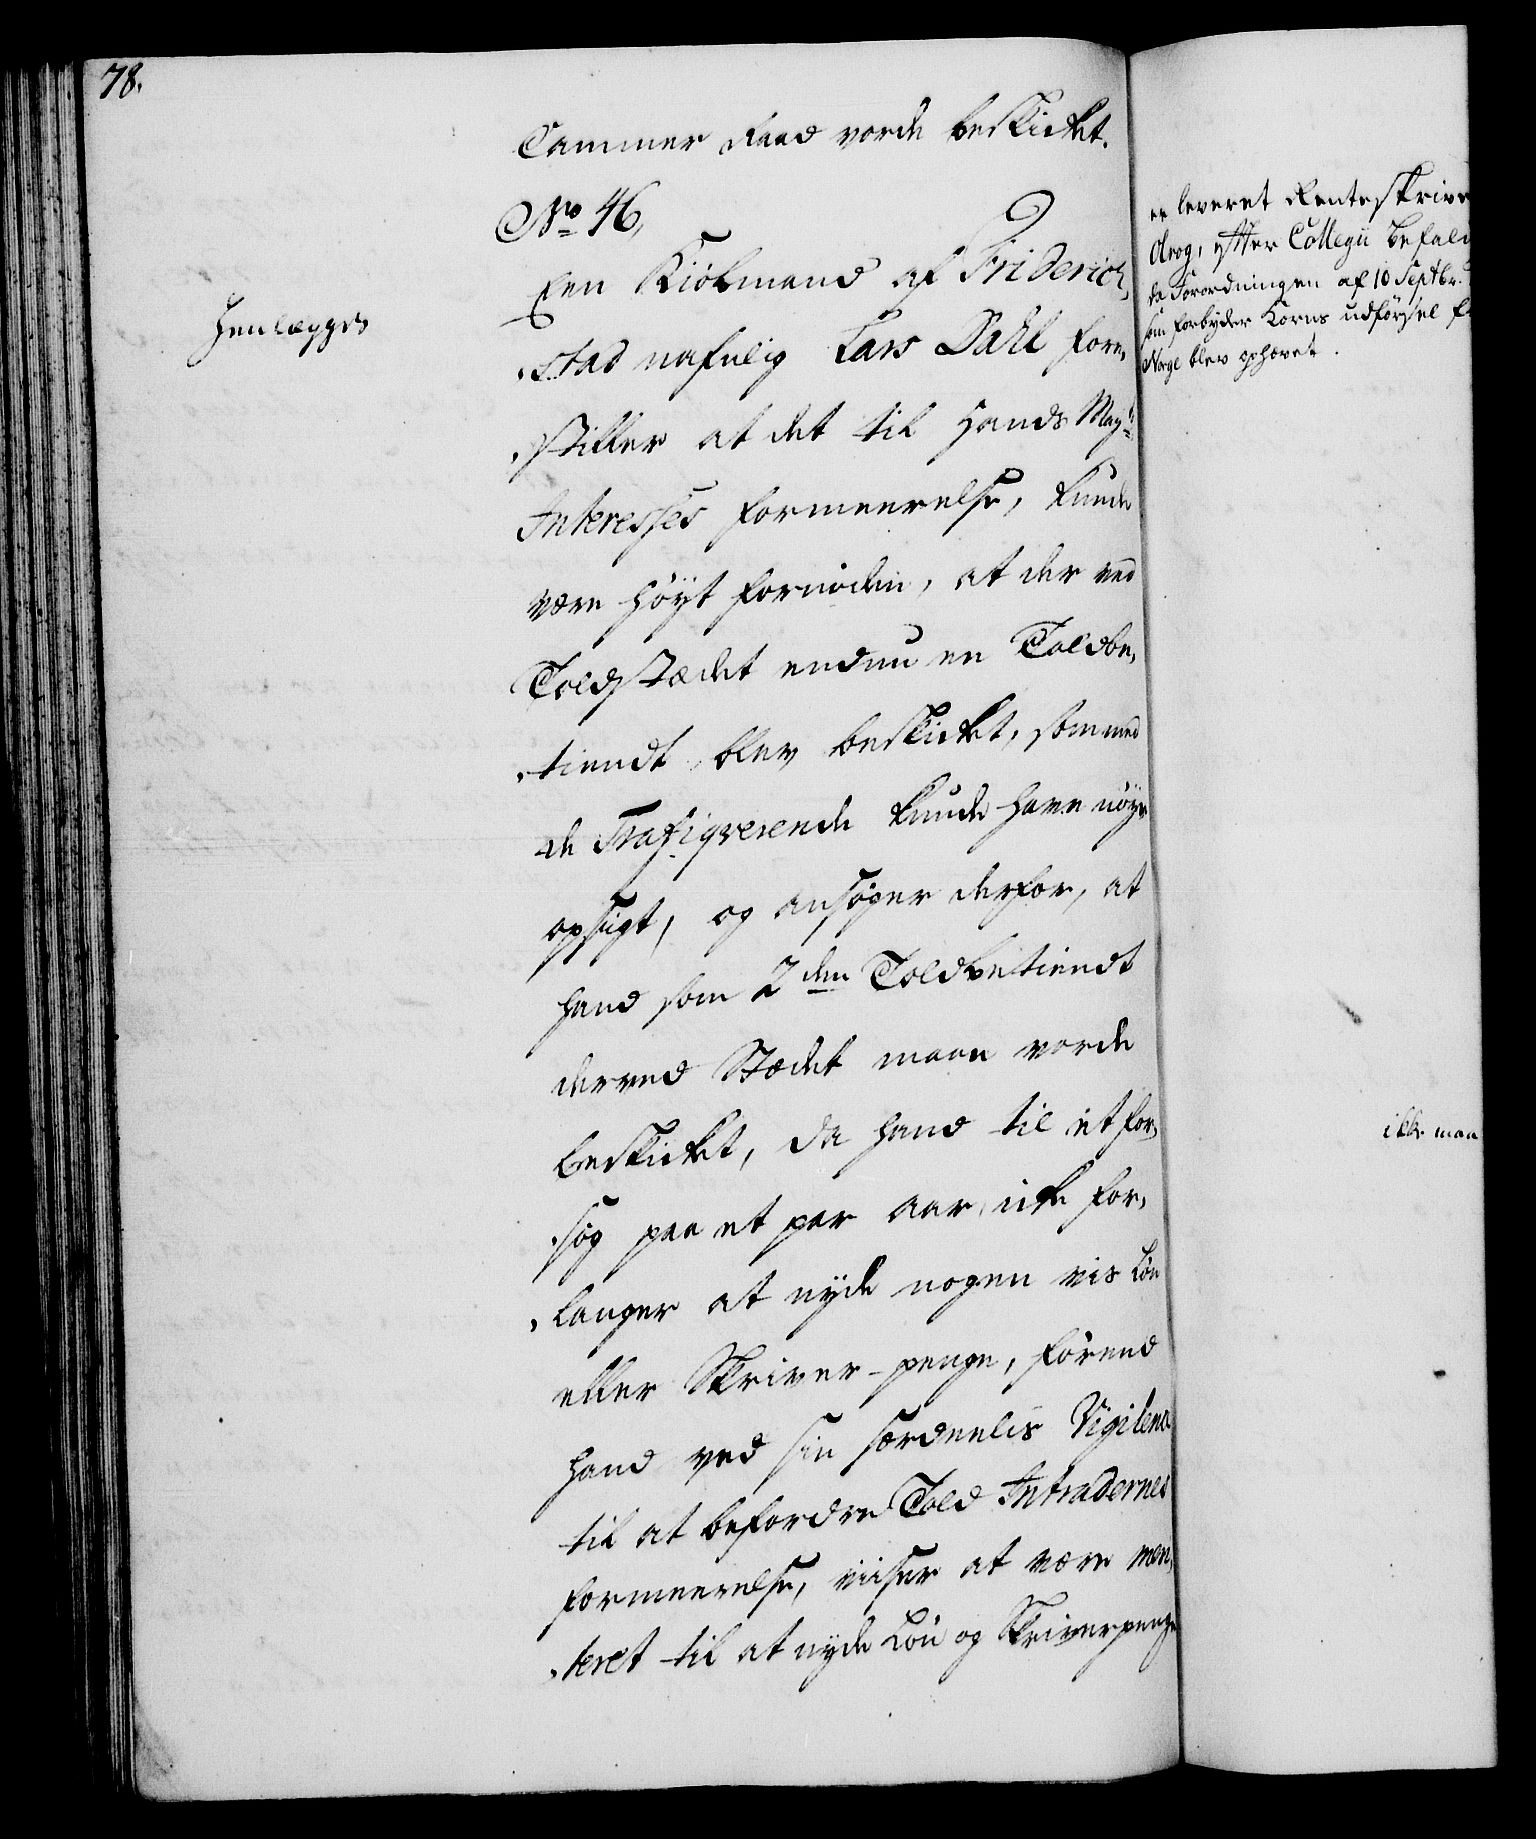 78.
Cammer Raad vorde beskicket.
No. 46,
Een Kiøbmand af Friderich,
Henlægges
,stad nafnlig Lars Dahl fore,
,stiller at det til Hands Mayts
Interesses formeerelse, kunde
være høyt fornøden, at der ved
Toldstædet endnu en Toldbe,
,tiendt blev beskicket, som med
de Trafiqverende kunde have nøye
opsigt, og ansøger derfor, at
hand som 2den Toldbetiendt
derved Stædet maae vorde
beskicket, da hand til et for,
,søg paa et par aar, icke for,
,langer at nyde nogen vis Løn
eller Skriver-penge, førend
hand ved sin særdeelis Vigilence
til at befordre Told Intradernes
formeerelse, viiser at være meri,
,teret til at nyde Løn og Skriverpenge
er leveret Renteskriver
Krog, efter Collegii befaling
da Forordningen af 10 Septbr.
som forbyder Korns udførsel fra
Norge blev ophævet.
ikke maa